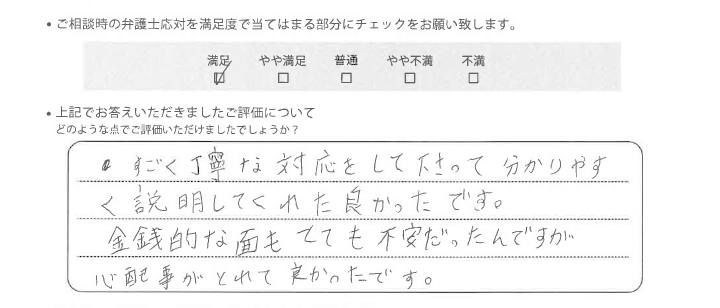 • ご相談時の弁護士応対を満足度で当てはまる部分にチェックをお願い致します。
満足 やや満足 普通 やや不満 不満
☑ □ □ □ □
• 上記でお答えいただきましたご評価について
どのような点でご評価いただけましたでしょうか？
• すごく丁寧な対応をして下さって分かりやす
く説明してくれた良かったです。
金銭的な面もとても不安だったんですが
心配事がとれて良かったです。